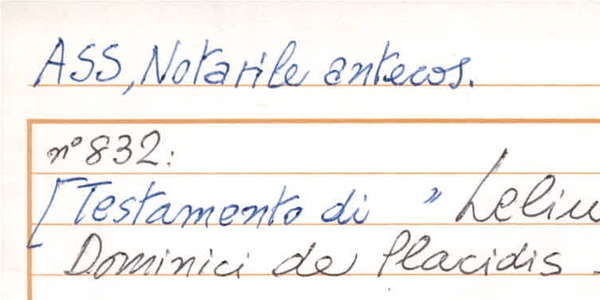 ASS, Notarile antecos.
n° 832:
[Testamento di "
Dominici de Placidis